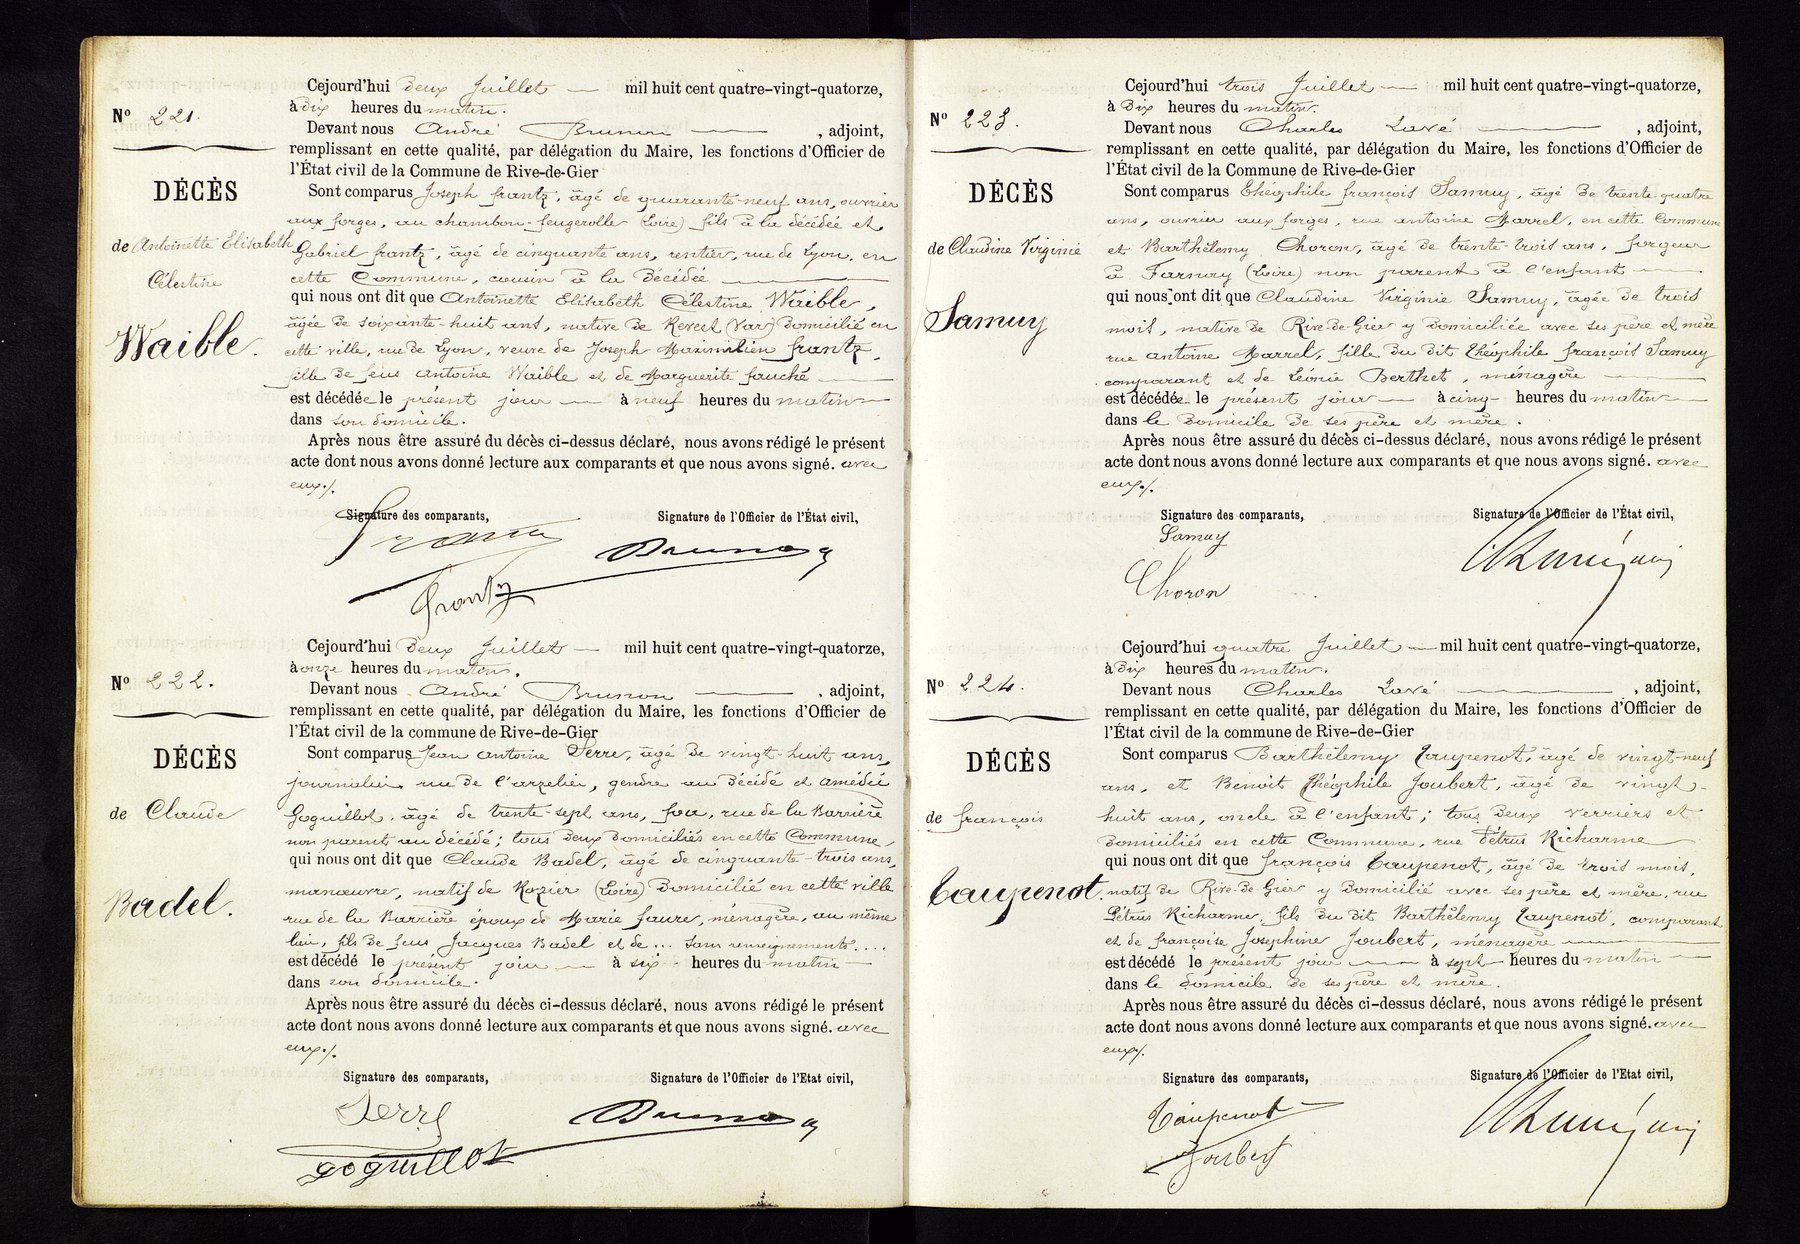 Cejourd'hui deux Juillet — mil huit cent quatre-vingt-quatorze,
à dix heures du matin.
N° 221.
Devant nous André Brunon — , adjoint,
remplissant en cette qualité, par délégation du Maire, les fonctions d'Officier de
l'État civil de la Commune de Rive-de-Gier
DÉCÈS
Sont comparus Joseph frantz, âgé de quarante-neuf ans, ouvrier
aux forges, au chambon-feugerolle (Loire) fils à la décédée et
de Antoinette Elisabeth
Célestine
Gabriel frantz, âgé de cinquante ans, rentier, rue de Lyon, en
cette Commune, cousin à la Décédée —
Waible.
qui nous ont dit que Antoinette Elisabeth Célestine Waible,
âgée de soixante-huit ans, native de Revest (Var) domicilié en
cette ville, rue de Lyon, veuve de Joseph Maximilien frantz,
fille de feus Antoine Waible et de Marguerite fauché —
est décédée le présent jour — à neuf heures du matin —
dans son domicile.
Après nous être assuré du décès ci-dessus déclaré, nous avons rédigé le présent
acte dont nous avons donné lecture aux comparants et que nous avons signé. avec
eux./.
Signature des comparants, Signature de l'Officier de l'État civil,
Frantz Brunon
Frantz
Cejourd'hui deux Juillet — mil huit cent quatre-vingt-quatorze,
à onze heures du matin.
N° 222.
Devant nous André Brunon — , adjoint,
remplissant en cette qualité, par délégation du Maire, les fonctions d'Officier de
l'État civil de la commune de Rive-de-Gier
DÉCÈS
Sont comparus Jean Antoine Serre, âgé de vingt-huit ans,
journalier rue de l'arzelier, gendre au décédé et Amédée
de Claude
Goguillot, âgé de trente-sept ans, rue de la Barrière
non parent au décédé; tous deux domiciliés en cette Commune,
Badel.
qui nous ont dit que Claude Badel, âgé de cinquante-trois ans,
manœuvre, natif de Rozier (Loire) domicilié en cette ville
rue de la Barrière époux de Marie faure, ménagère, au même
lieu, fils de feus Jacques Badel et de ... sans renseignements....
est décédé le présent jour — à six heures du matin —
dans son domicile.
Après nous être assuré du décès ci-dessus déclaré, nous avons rédigé le présent
acte dont nous avons donné lecture aux comparants et que nous avons signé. avec
eux./.
Signature des comparants, Signature de l'Officier de l'Etat civil,
Serre Brunon
goguillot
Cejourd'hui trois Juillet — mil huit cent quatre-vingt-quatorze,
à Dix heures du matin.
N° 223.
Devant nous Charles Lavé — , adjoint,
remplissant en cette qualité, par délégation du Maire, les fonctions d'Officier de
l'État civil de la Commune de Rive-de-Gier
DÉCÈS
Sont comparus Théophile françois Samuy, âgé de trente quatre
ans, ouvrier aux forges, rue antoine Marrel, en cette Commune
de Claudine Virginie
et Barthélemy Choron, âgé de trente-trois ans, forgeur
à Farnay (Loire) non parent à l'enfant —
Samuy
qui nous ont dit que Claudine Virginie Samuy, âgée de trois
mois, native de Rive-de-Gier y domiciliée avec ses père et mère
rue antoine Marrel, fille du dit Théophile françois Samuy
comparant et de Léonie Berthet, ménagère —
est décédée le présent jour — à cinq heures du matin —
dans le domicile de ses père et mère.
Après nous être assuré du décès ci-dessus déclaré, nous avons rédigé le présent
acte dont nous avons donné lecture aux comparants et que nous avons signé. avec
eux./.
Signature des comparants, Signature de l'Officier de l'État civil,
Samuy
Choron
Cejourd'hui quatre Juillet — mil huit cent quatre-vingt-quatorze,
à Dix heures du matin.
N° 224.
Devant nous Charles Lavé — , adjoint,
remplissant en cette qualité, par délégation du Maire, les fonctions d'Officier de
l'État civil de la commune de Rive-de-Gier
DÉCÈS
Sont comparus Barthélemy Taupenot, âgé de vingt-neuf
ans, et Benoit Théophile Joubert, âgé de vingt-
de françois
huit ans, oncle à l'enfant; tous deux verriers et
domiciliés en cette Commune, rue Pétrus Richarme
Taupenot.
qui nous ont dit que françois Taupenot, âgé de trois mois,
natif de Rive-de-Gier y domicilié avec ses père et mère, rue
Pétrus Richarme, fils du dit Barthélemy Taupenot, comparant
et de françoise Joséphine Joubert, ménagère —
est décédé le présent jour — à sept heures du matin —
dans le domicile de ses père et mère.
Après nous être assuré du décès ci-dessus déclaré, nous avons rédigé le présent
acte dont nous avons donné lecture aux comparants et que nous avons signé. avec
eux./.
Signature des comparants, Signature de l'Officier de l'État civil,
Taupenot
Joubert